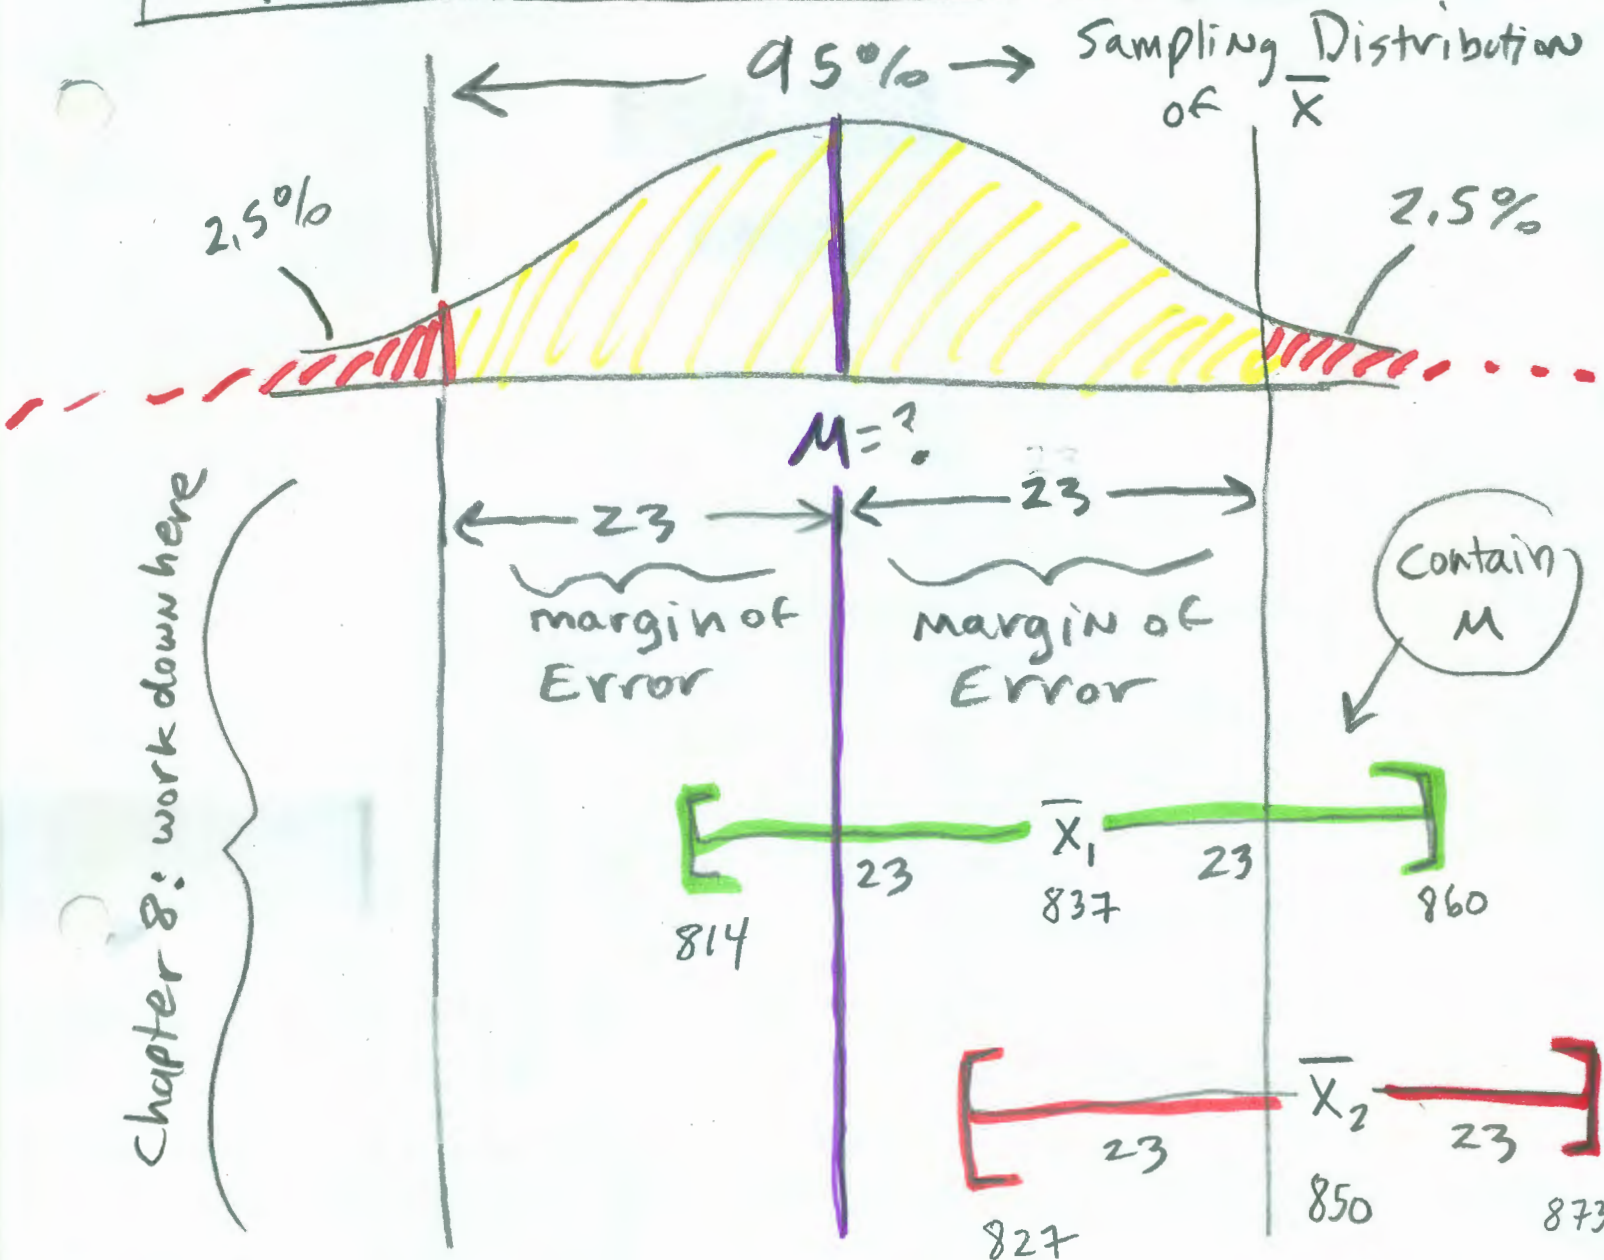 95%
Sampling Distribution
of X̅
2.5%
2.5%
M=?
23
23
margin of
Error
Margin of
Error
Contain
M
Chapter 8: work down here
X̅₁
23
23
837
814
860
X̅₂
23
23
850
827
873